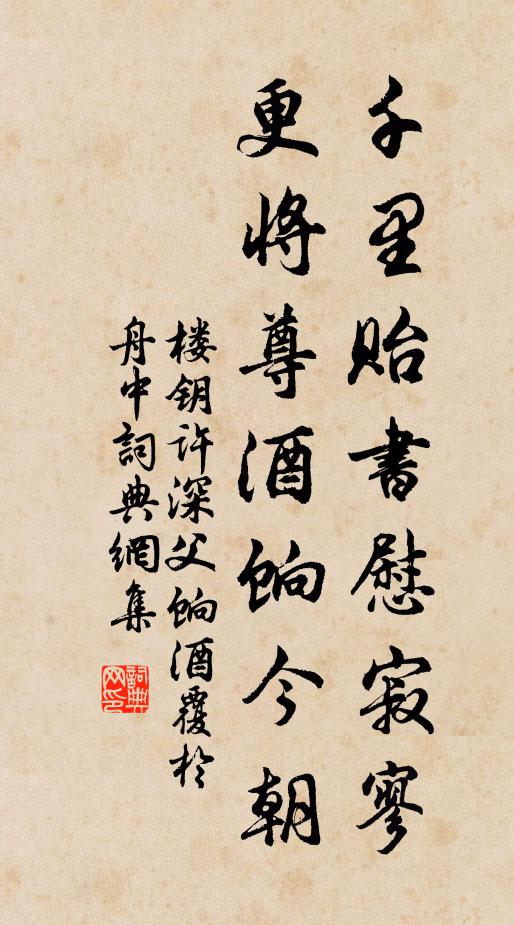 千里贻書慰寂寥
更将尊酒餉今朝
楼钥许深父餉酒覆於
舟中詞典網集
詞典
网印